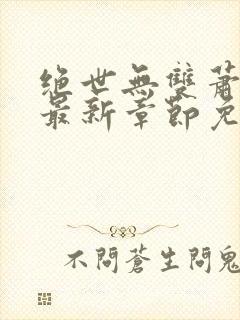 絕世無雙蕭
最新章節免
不問蒼生問鬼